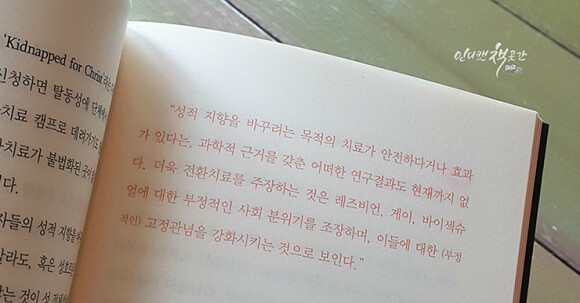 'Kidnapped for Christ'
신청하면 탈동성애 단체에서
치료 캠프로 데려가기도
치료가 불법화된
다.
자들의 성적 지향을
라도, 혹은
는 것이
인디캣 책곳간
"성적 지향을 바꾸려는 목적의 치료가 안전하다거나 효과
가 있다는, 과학적 근거를 갖춘 어떠한 연구결과도 현재까지 없
다. 더욱 전환치료를 주장하는 것은 레즈비언, 게이, 바이섹슈
얼에 대한 부정적인 사회 분위기를 조장하며, 이들에 대한 (부정
적인) 고정관념을 강화시키는 것으로 보인다."